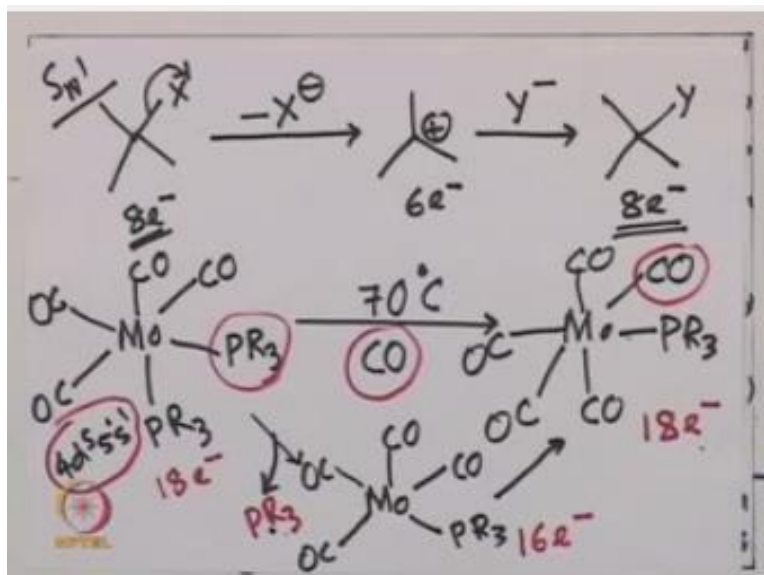 SN¹
X
-X⊖
⊕
Y⁻
Y
8e⁻
6e⁻
8e⁻
CO
CO
OC
Mo
PR₃
OC
PR₃
4d⁵5s¹
18e⁻
70°C
CO
CO
CO
OC
Mo
PR₃
OC
CO
18e⁻
PR₃
CO
OC
CO
Mo
OC
PR₃
16e⁻
NPTEL